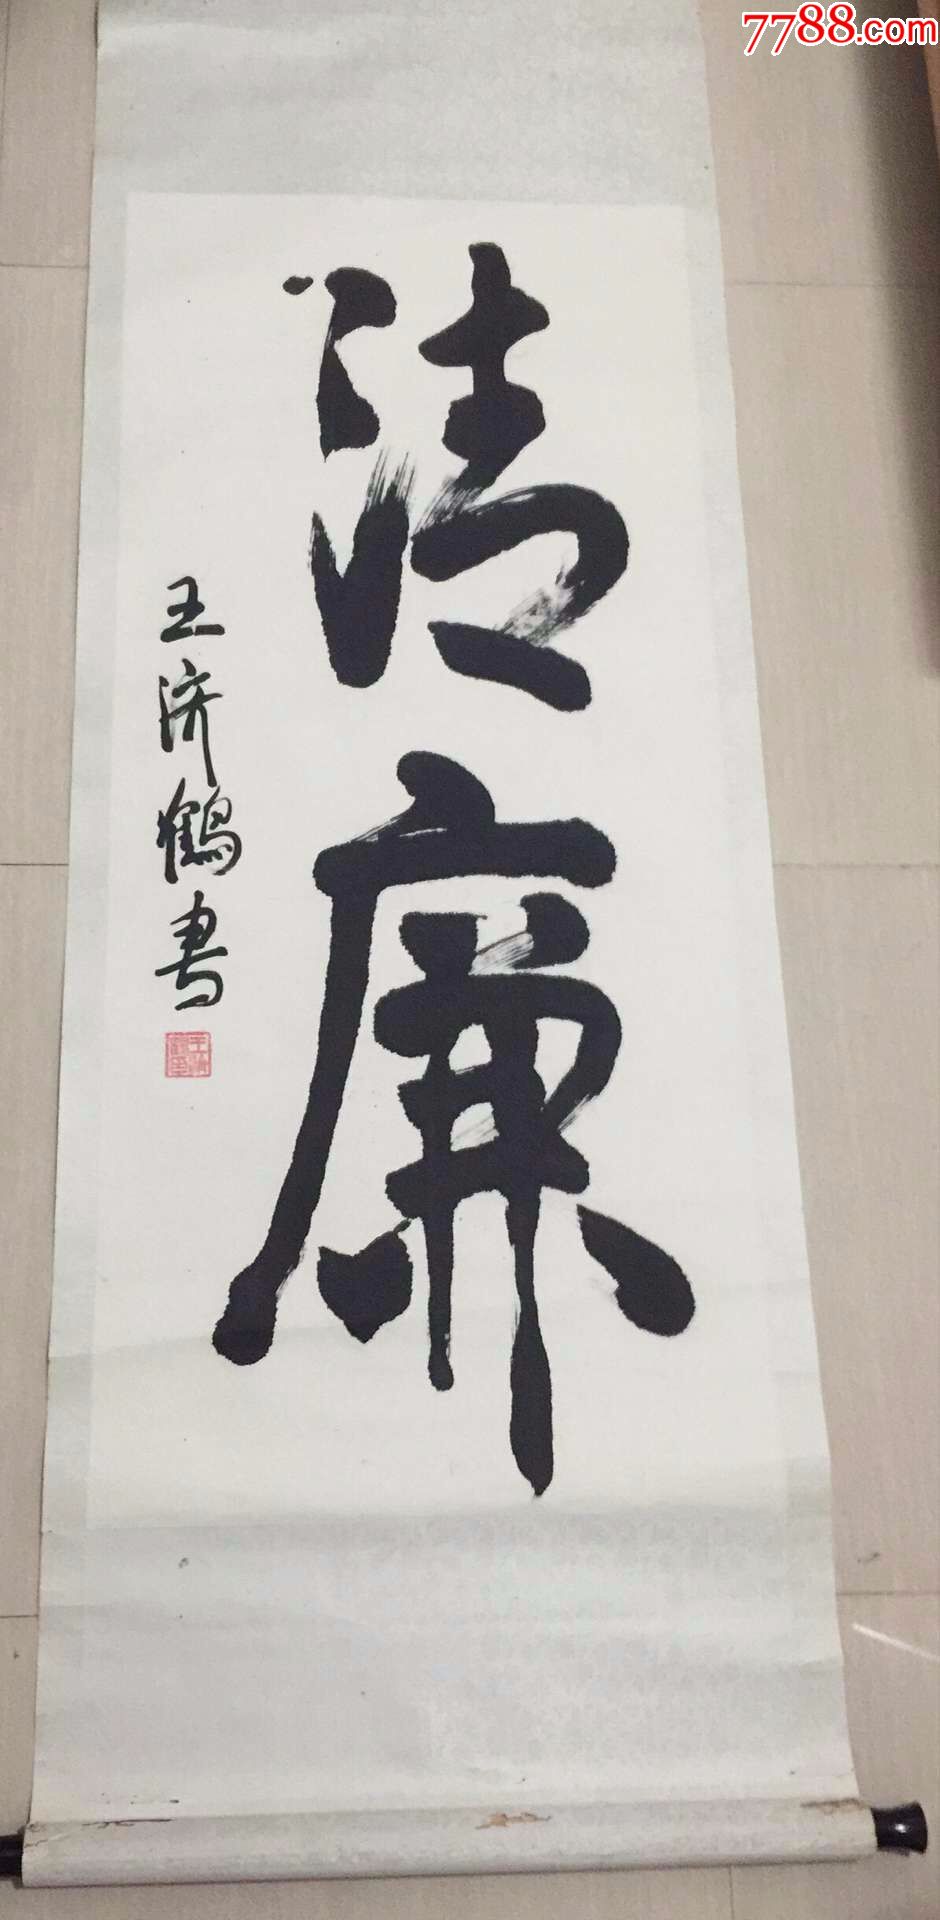 7788.com
清廉
王济鹤書